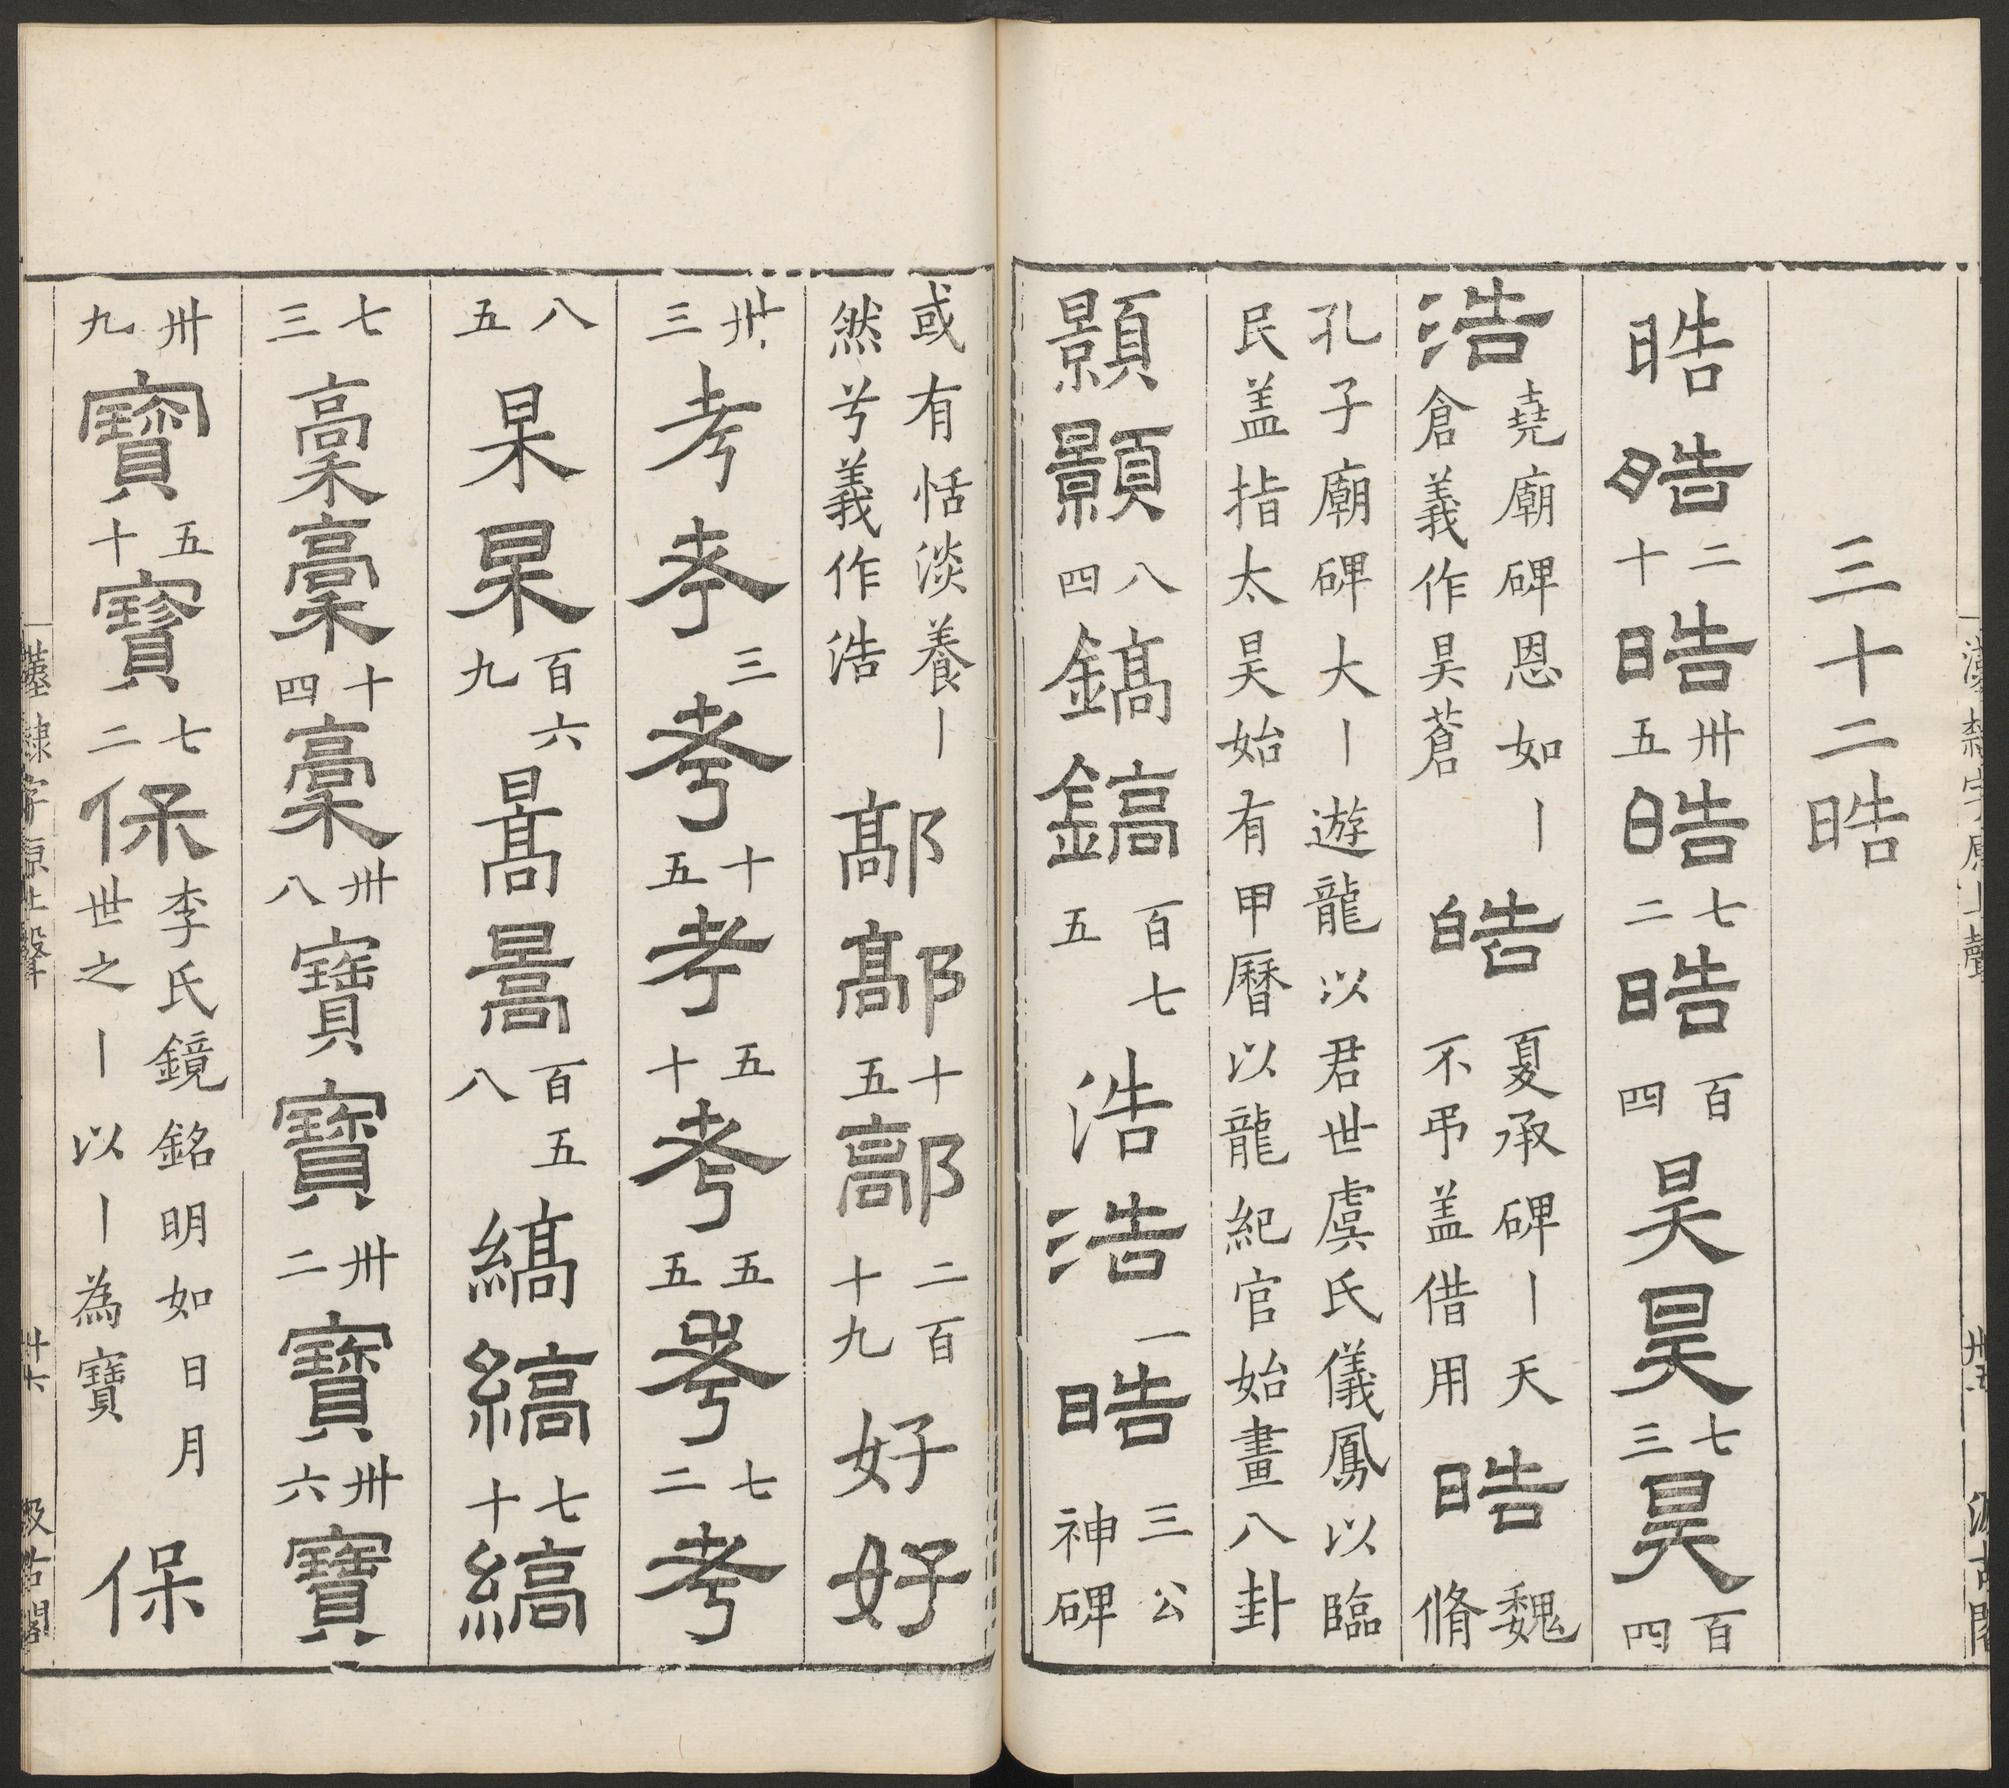 三十二晧
晧晧二十晧卅五晧七二晧百四昊昊七三昊百四
浩堯廟碑恩如丨倉義作昊蒼皓夏承碑丨天不弔盖借用晧魏脩
孔子廟碑大丨遊龍以君世虞氏儀鳳以臨
民盖指太昊始有甲曆以龍紀官始畫八卦
顥顥八四鎬鎬百七五浩浩一晧三公神碑
或有恬淡養丨
然兮義作浩鄗鄗十五鄗二百十九好好
卅三考考三考十五考五十考五五考七二考
八五杲杲百六九暠暠百五八縞縞七十縞
七三稾稾十四稾卅八寶寶卅二寶卅六寶
卅九寶五十寶七二保李氏鏡銘明如日月世之丨以丨為寶保